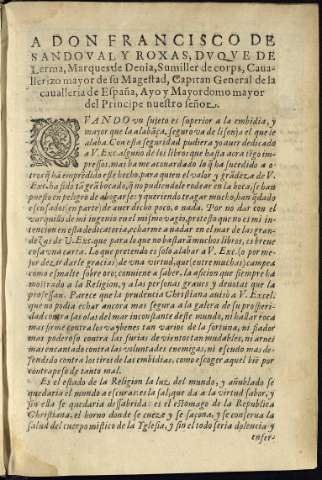 A DON FRANCISCO DE
SANDOVAL Y ROXAS, DVQVE DE
Lerma, Marques de Denia, Sumiller de corps, Caua-
llerizo mayor de su Magestad, Capitan General de la
caualleria de España, Ayo y Mayordomo mayor
del Principe nuestro señor.
QVANDO vn sujeto es superior a la embidia, y
mayor que la alabãça, seguro va de lisonja el que le
alaba. Con esta seguridad pudiera yo auer dedicado
a V. Exc. alguno de los libros que hasta aora tẽgo im-
pressos, mas ha me acouardado lo q̃ ha sucedido a o-
tros q̃ hã emprẽdido este hecho, para quien el valor y grãdeza de V.
Exc. ha sido tã grã bocado, q̃ no pudiendole rodear en la boca, se han
puesto en peligro de ahogarse: y queriendo tragar mucho, han q̃dado
escusados (en parte) de auer dicho poco, o nada. Por no dar con el
varquillo de mi ingenio en el mismo vago, protesto que no es mi in-
tencion en esta dedicatoria, echarme a nadar en el mar de las gran-
dezas de V. Exc. que para lo que no bastarã muchos libros, es breue
cosa vna carta. Lo que pretendo es solo alabar a V. Exc. (o por me-
jor dezir darle gracias) de vna virtud, que (entre muchas) campea
como esmalte sobre oro; conuiene a saber, la aficion que siempre ha
mostrado a la Religion, y a las personas graues y deuotas que la
professan. Parece que la prudencia Christiana auisò a V. Excel.
que no podia echar ancora mas segura a la galera de su prosperi-
dad contra las olas del mar inconstante deste mundo, ni hallar roca
mas firme contra los vayuenes tan varios de la fortuna, ni fiador
mas poderoso contra las furias de vientos tan mudables, ni arnes
mas encantado contra las voluntades enemigas, ni escudo mas de-
fendedo contra los tiros de las embidias, como escoger aquel biẽ por
contrapeso de tanto mal.
Es el estado de la Religion la luz del mundo, y añublado se
quedaria el mundo a escuras: es la sal, que da a la virtud sabor, y
sin ella se quedaria dessabrida: es el estomago de la Republica
Christiana, el horno donde se cueze y se sazona, y se conserua la
salud del cuerpo mistico de la Yglesia, y sin el todo seria dolencia y
enfer-